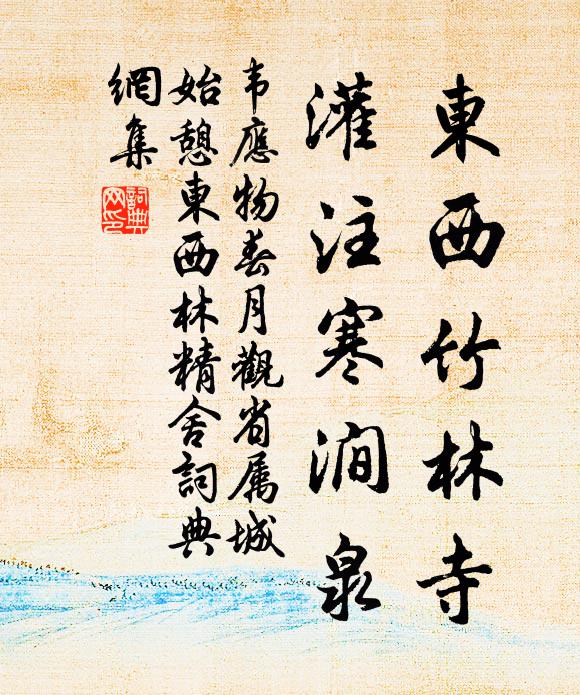 東西竹林寺
灌注寒澗泉
韦應物春月觀省属城
始憩東西林精舍詞典
網集
詞典
网印